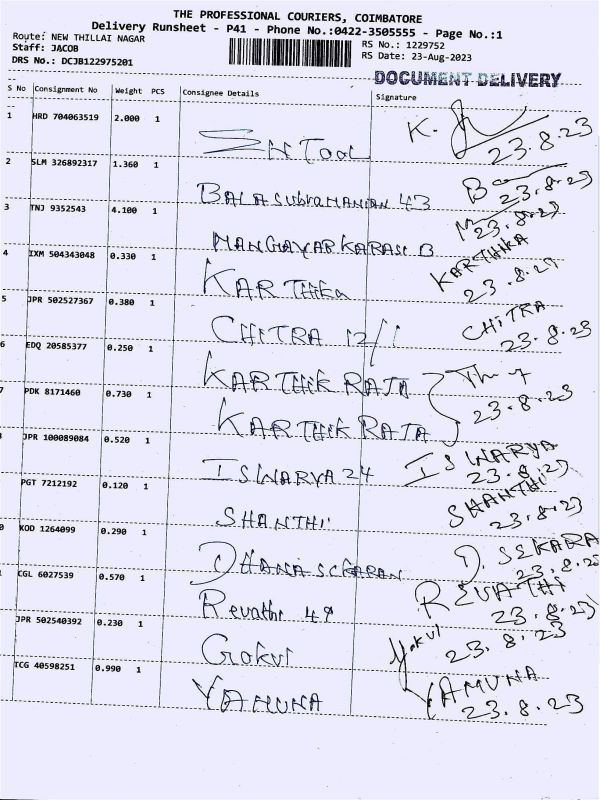 THE PROFESSIONAL COURIERS, COIMBATORE
Delivery Runsheet - P41 - Phone No.:0422-3505555 - Page No.:1
Route: NEW THILLAI NAGAR
RS No.: 1229752
Staff: JACOB
RS Date: 23-Aug-2023
DRS No.: DCJB122975201
DOCUMENT DELIVERY
S No Consignment No Weight PCS Consignee Details Signature
1 HRD 704063519 2.000 1 SN TOOL K. 23.8.23
2 SLM 326892317 1.360 1 BALASubraMANIAN 43 23.8.23
3 TNJ 9352543 4.100 1 MANGAYARKARASI B 23.8.23
4 IXM 504343048 0.330 1 KARTHika KARTHIKA 23.8.23
5 JPR 502527367 0.380 1 CHITRA 12/1 CHITRA 23.8.23
6 EDQ 20585377 0.250 1 KARTHIK RAJA
7 PDK 8171460 0.730 1 KARTHIK RAJA 23.8.23
JPR 100089084 0.520 1 ISWARYA 24 ISWARYA 23.8.23
PGT 7212192 0.120 1 SHANTHI SHANTHI 23.8.23
0 KOD 1264099 0.290 1 DHANASEKARAN D. SEKARA 23.8.23
CGL 6027539 0.570 1 Revathi 49 REVATHI 23.8.23
JPR 502540392 0.230 1 Gokul Gokul 23.8.23
TCG 40598251 0.990 1 YAMUNA YAMUNA 23.8.23